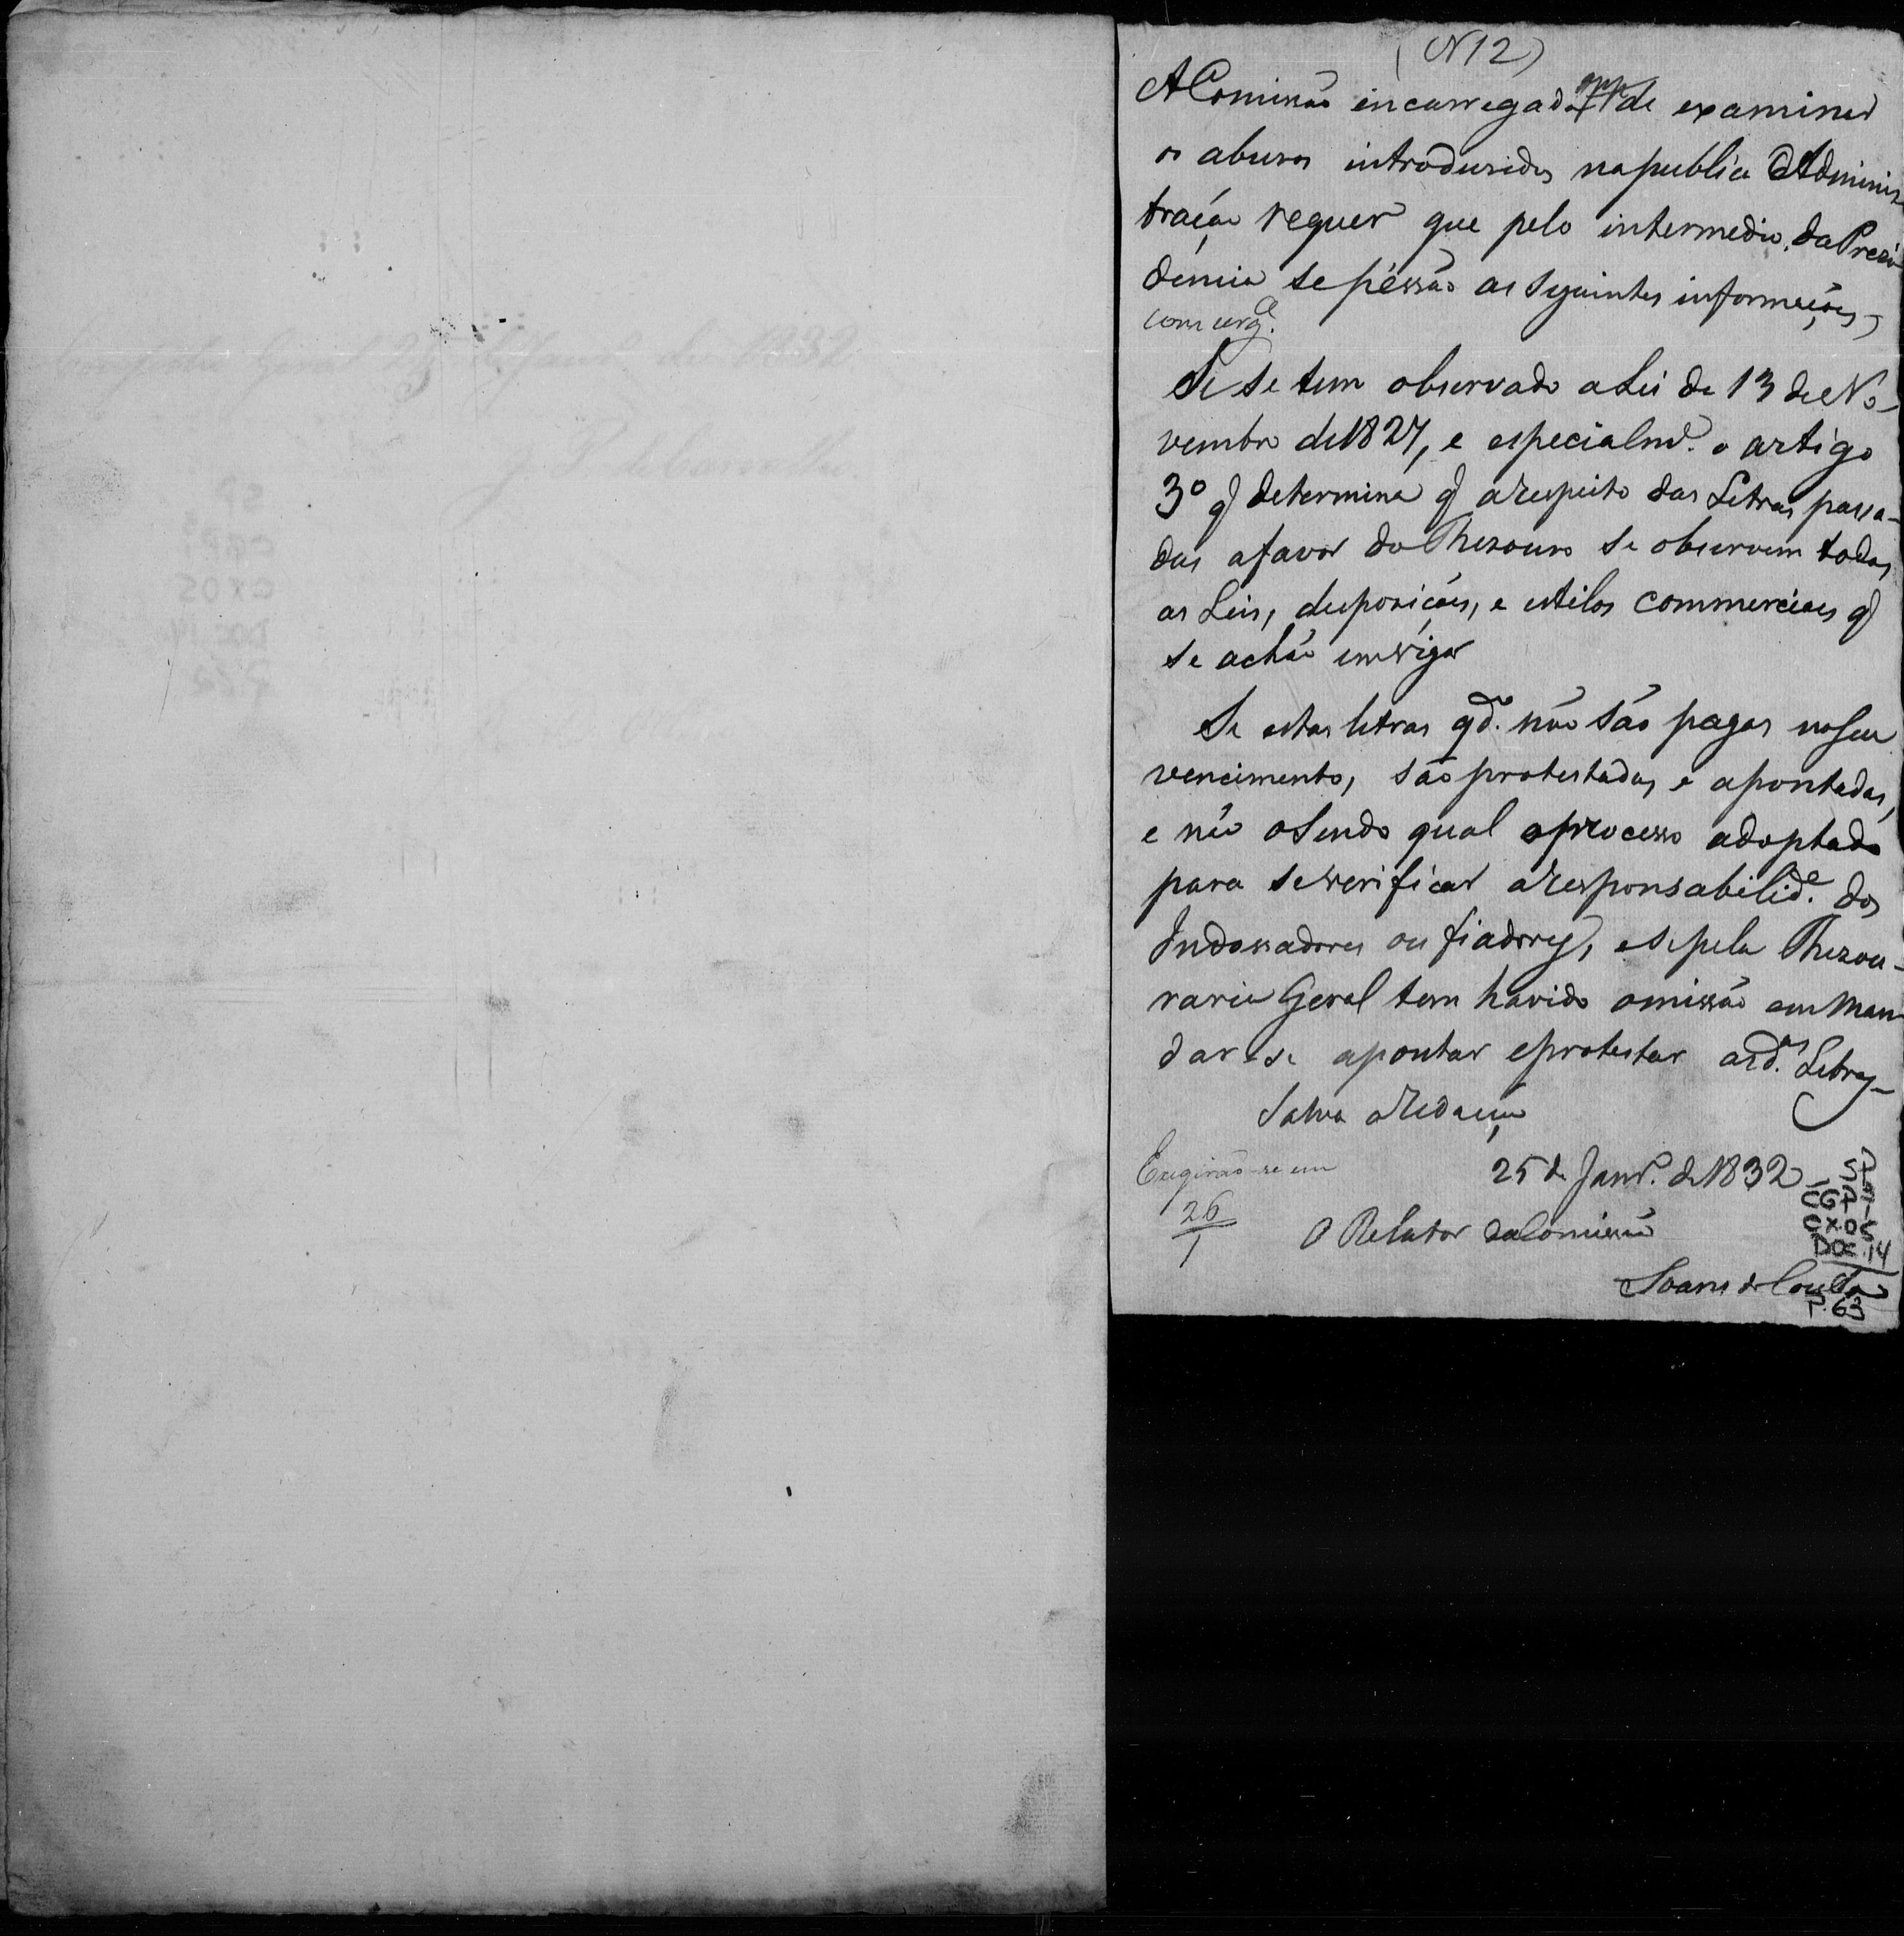 (N 12)
A Comissão encarregada de examinar
os abusos introdusidos na publica Adminis-
tração requer que pelo intermedio da Prezi-
dencia se péssão as seguintes informações,
com urg.ª
Se se tem observado a Lei de 13 de No-
vembro de 1827, e especialm.e o artigo
3º q determina q a respeito das Letras passa-
das a favor do Thesouro se observem todas
as Leis, desposições, e estilos commerciaes q
se achão em vigor
Se estas letras qd.o não são pagas no seu
vencimento, são protestadas e apontadas,
e não o sendo qual o processo adoptado
para se verificar a responsabilid.e dos
Indossadores ou fiadores, e se pela Thezou-
raria Geral tem havido omissão em man-
dar-se apontar e protestar as d.as Letras
Salva a Redação
Exigirão-se em
26
1
25 de Janr.o de 1832
O Relator da Comissão
Soares de Couto
SP
CGP1
CX.05
DOC.14
P.63
Geral 2 de Janr.o de 1832
J. P. de Carvalho